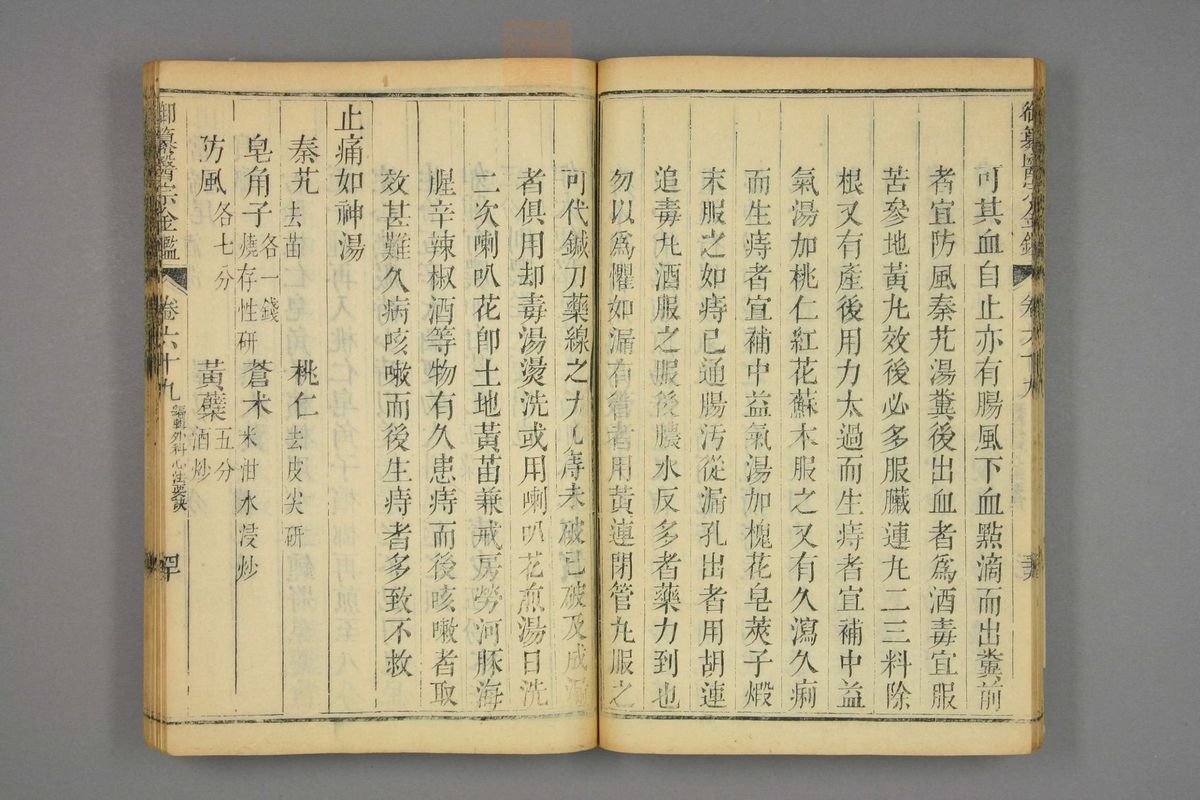 御纂醫宗金鑑 卷六十九
可其血自止亦有腸風下血點滴而出糞前
者宜防風秦艽湯糞後出血者為酒毒宜服
苦參地黃丸效後必多服臟連丸二三料除
根又有產後用力太過而生痔者宜補中益
氣湯加桃仁紅花蘇木服之又有久瀉久痢
而生痔者宜補中益氣湯加槐花皂莢子煅
末服之如痔已通腸汚從漏孔出者用胡連
追毒丸酒服之服後膿水反多者藥力到也
勿以為懼如漏有管者用黃連閉管丸服之
可代鍼刀藥線之力凡痔未破已破及成漏
者俱用却毒湯燙洗或用喇叭花煎湯日洗
二次喇叭花卽土地黃苗兼戒房勞河豚海
腥辛辣椒酒等物有久患痔而後咳嗽者取
效甚難久病咳嗽而後生痔者多致不救
止痛如神湯
秦艽去苗 桃仁去皮尖研
皂角子燒存性研各一錢 蒼朮米泔水浸炒
防風各七分 黃蘗五分酒炒
御纂醫宗金鑑 卷六十九 編輯外科心法要訣